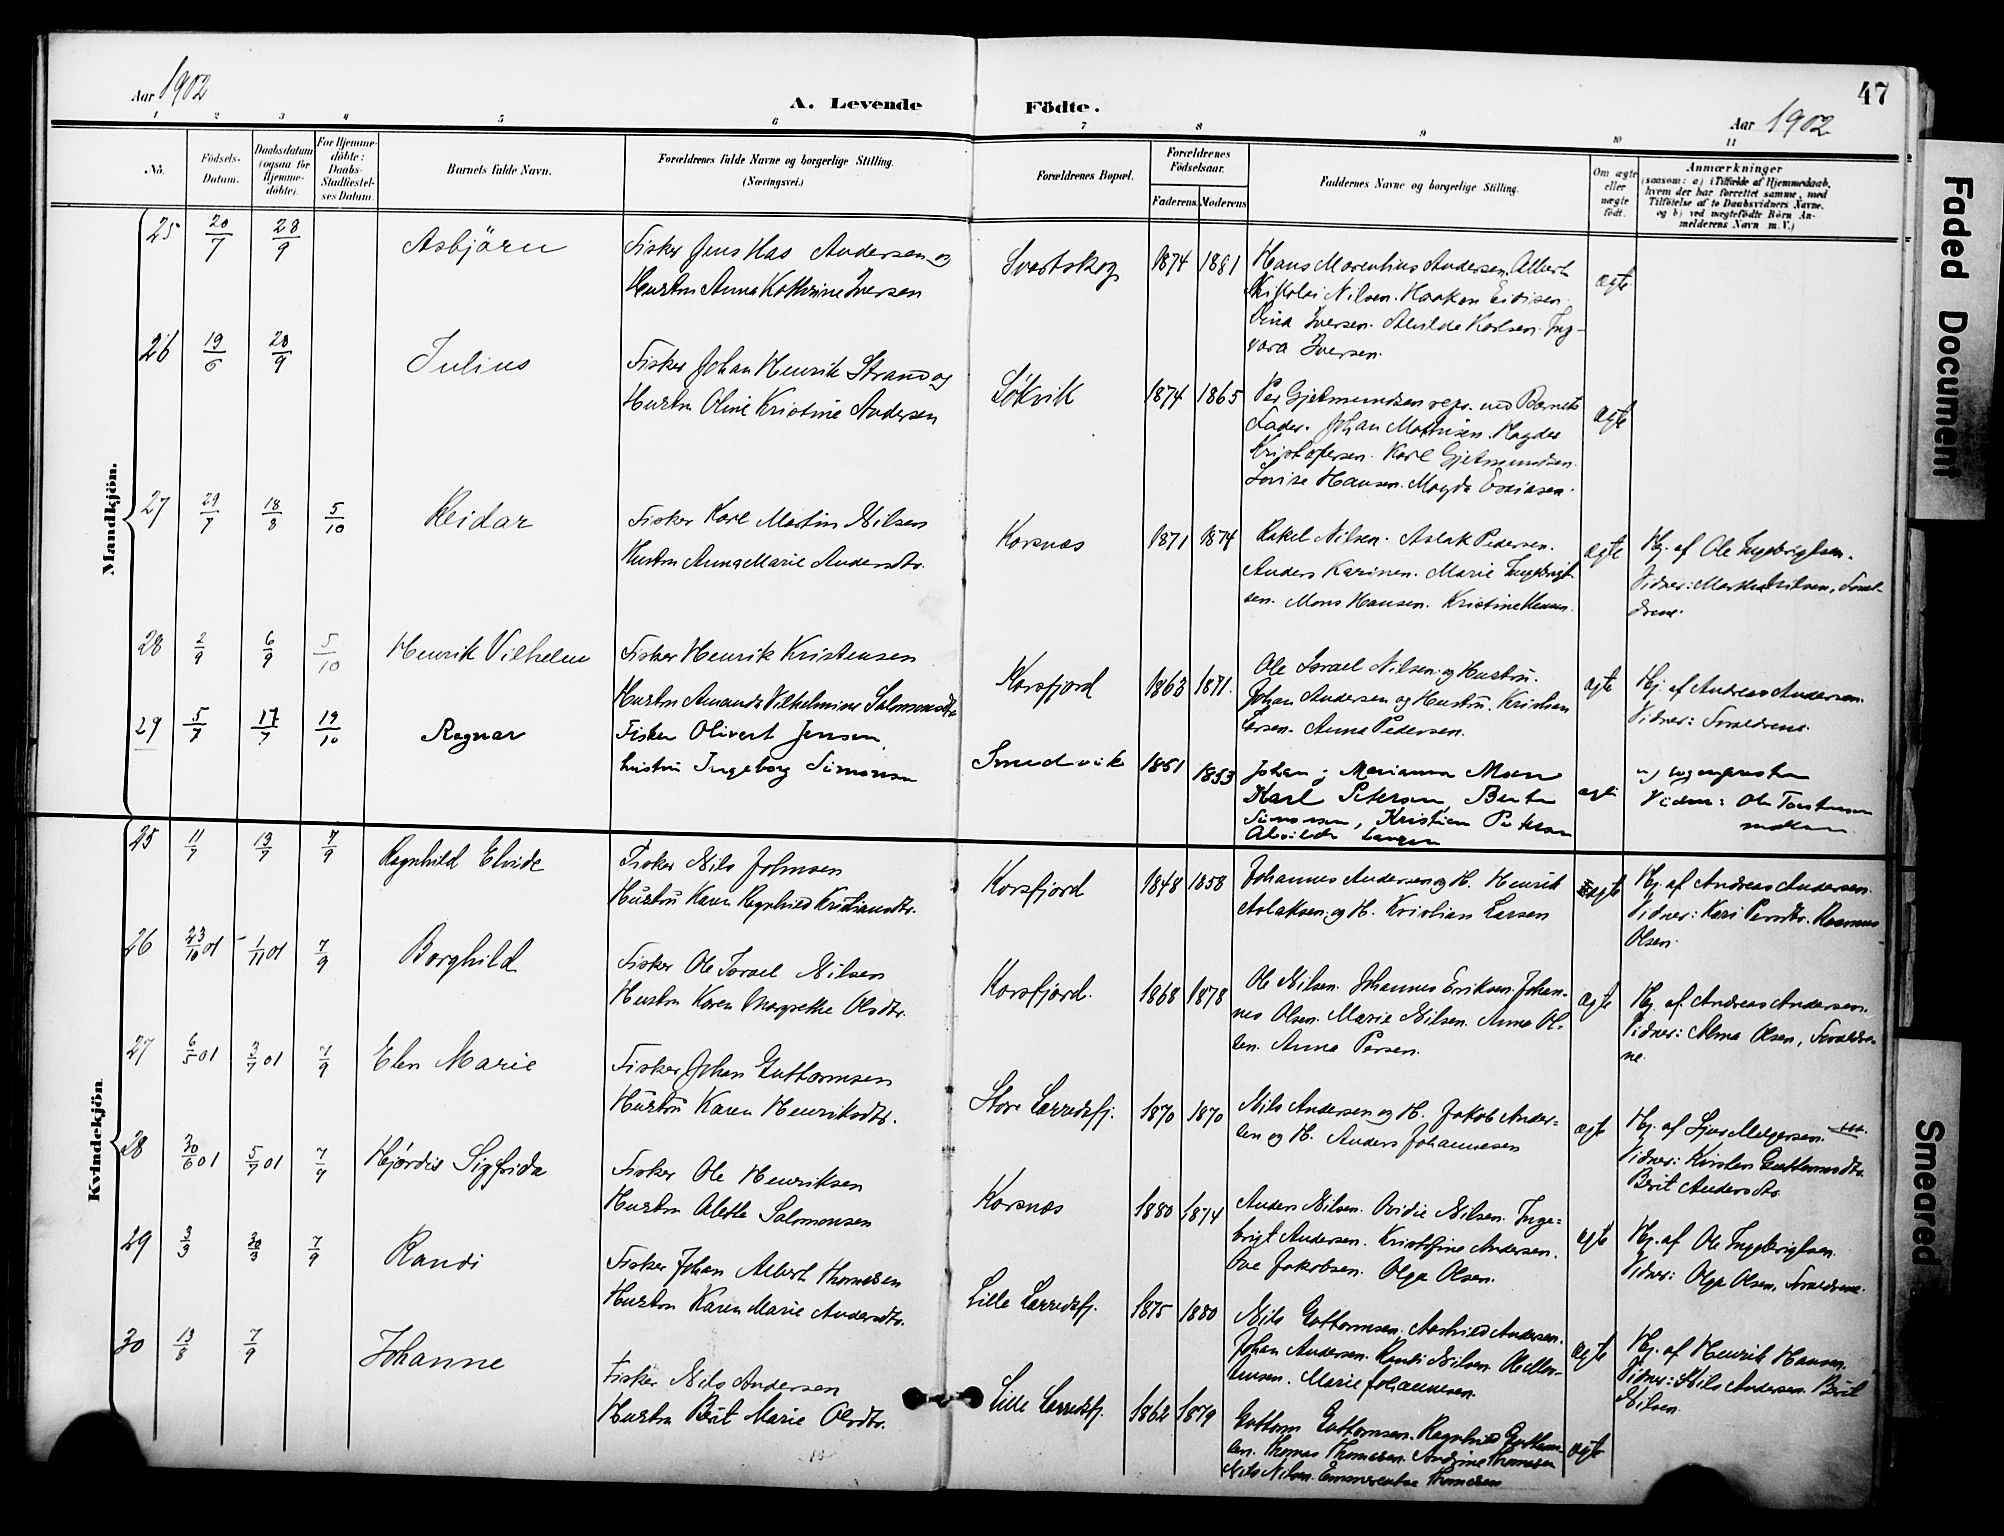 Aar 1902
A. Levende
Födte.
47
Aar 1902
1 2 3 4 5 6 7 8 9 10 11
No.
Födsels-Datum.
Daabsdatum (ogsaa for Hjemmedöbte).
For Hjemmedöbte: Daabs-Stadfæstelses Datum.
Barnets fulde Navn.
Forældrenes fulde Navne og borgerlige Stilling.
(Næringsvei.)
Forældrenes Bopæl.
Forældrenes Födselsaar.
Faderens. Moderens
Faddernes Navne og borgerlige Stilling.
Om ægte eller uægte födt.
Anmærkninger
(saasom: a) i Tilfælde af Hjemmedaab, hvem der har forrettet samme, med Tilföielse af to Daabsvidners Navne, og b) ved uægtefödte Börn Anmelderens Navn m. V.)
Mandkjön.
25 20/7 28/9 Asbjörn
Fisker Jens Has Andersen og
Hustru Anna Kathrine Iversen
Svartskog 1874 1881
Hans Marentius Andersen. Albert
Nikolai Nilsen. Haakon Eidisen.
Dina Iversen. Alvilde Karlsen. Ing-
vara Iversen.
ægte
26 19/6 28/9 Julius
Fisker Johan Henrik Strand og
Hustru Oline Kristine Andersen
Søkvik 1874 1865
Per Gjetmundsen repr. ved Barnets
Fader. Johan Mathisen. Hagder
Kristofersen. Karl Gjetmundsen.
Lovise Hansen. Magda Esaiasen.
ægte
27 29/7 18/8 5/10 Reidar
Fisker Karl Martin Nilsen
Hustru Anna Marie Andersdtr.
Korsnæs 1871 1874
Rakel Nilsen. Aslak Pedersen.
Anders Karinen. Marie Ingebrigt-
sen. Mons Hansen. Kristine Hansen.
ægte
Hj. af Ole Ingebrigtsen.
Vidner: Marthe Nilsen, Foræl-
drene.
28 2/9 6/9 5/10 Henrik Vilhelm
Fisker Henrik Kristensen
Hustru Amanda Vilhelmine Salomonsdtr
Korsfjord 1863 1871.
Ole Israel Nilsen og Hustru.
Johan Andersen og Hustru. Kristian
Larsen. Anna Pedersen.
ægte
Hj. af Andreas Andersen.
Vidner: Forældrene.
29 5/7 17/7 19/10 Ragnar
Fisker Olivert Jensen,
hustru Ingeborg Simonsen
Smedvik 1851 1853
Johan og Marianna Moen
Karl Petersen, Berte
Simonsen, Kristian Petersen
Alvilde Larsen
ægte
Vidner: Ole Torstensen
Kvindekjön.
25 11/7 13/7 7/9 Ragnhild Elvide
Fisker Nils Johnsen
Hustru Karen Ragnhild Kristiansdtr.
Korsfjord 1848 1858
Johannes Andersen og H. Henrik
Aslaksen og H. Kristian Larsen
ægte
Hj. af Andreas Andersen.
Vidner: Kari Persdtr. Rasmus
Olsen.
26 23/10 01 1/11 01 7/9 Borghild
Fisker Ole Israel Nilsen
Hustru Karen Margrethe Olsdtr.
Korsfjord. 1868 1878
Ole Nilsen. Johannes Eriksen. Johan-
nes Olsen. Marie Nilsen. Anna Ol-
sen. Anna Persen.
ægte
Hj. af. Andreas Andersen.
Vidner: Alma Olsen, Forældre-
ne.
27 6/5 01 3/7 01 7/9 Elen Marie
Fisker Johan Guttormsen
Hustru Karen Henriksdtr.
Store Lerredsfj. 1870 1870
Nils Andersen og H. Jakob Ander-
sen og H. Anders Johannesen
ægte
Hj. af Sjur Melgersen.
Vidner: Kirsten Guttormsdtr.
Berit Andersdtr.
28 30/6 01 5/7 01 7/9 Hjørdis Sigfrida
Fisker Ole Henriksen
Hustru Alette Salomonsen
Korsnæs 1880 1874
Anders Nilsen. Ovidie Nilsen. Inge-
brigt Andersen. Kristofine Andersen.
Ove Jakobsen. Olga Olsen.
ægte
Hj. af Ole Ingebrigtsen.
Vidner: Olga Olsen, Forældrene.
29 3/3 30/3 7/9 Randi
Fisker Johan Albert Thomesen
Hustru Karen Marie Andersdtr.
Lille Lerredsfj. 1875 1880
Nils Guttormsen. Aashild Andersen.
Johan Andersen. Randi Nilsen. Ole Mor-
tensen. Marie Johannesen.
ægte
Hj. af Henrik Hansen.
Vidner: Nils Andersen. Berit
Nilsen.
30 13/8 7/9 Johanne
Fisker Nils Andersen
Hustru Berit Marie Olsdtr.
Lille Lerredsfj. 1862 1879
Guttorm Guttormsen. Ragnhild Guttorm-
sen. Thomas Thomesen. Andrine Thomesen
Nils Nilsen. Emmerentse Thomesen
ægte
Faded Document
Smeared